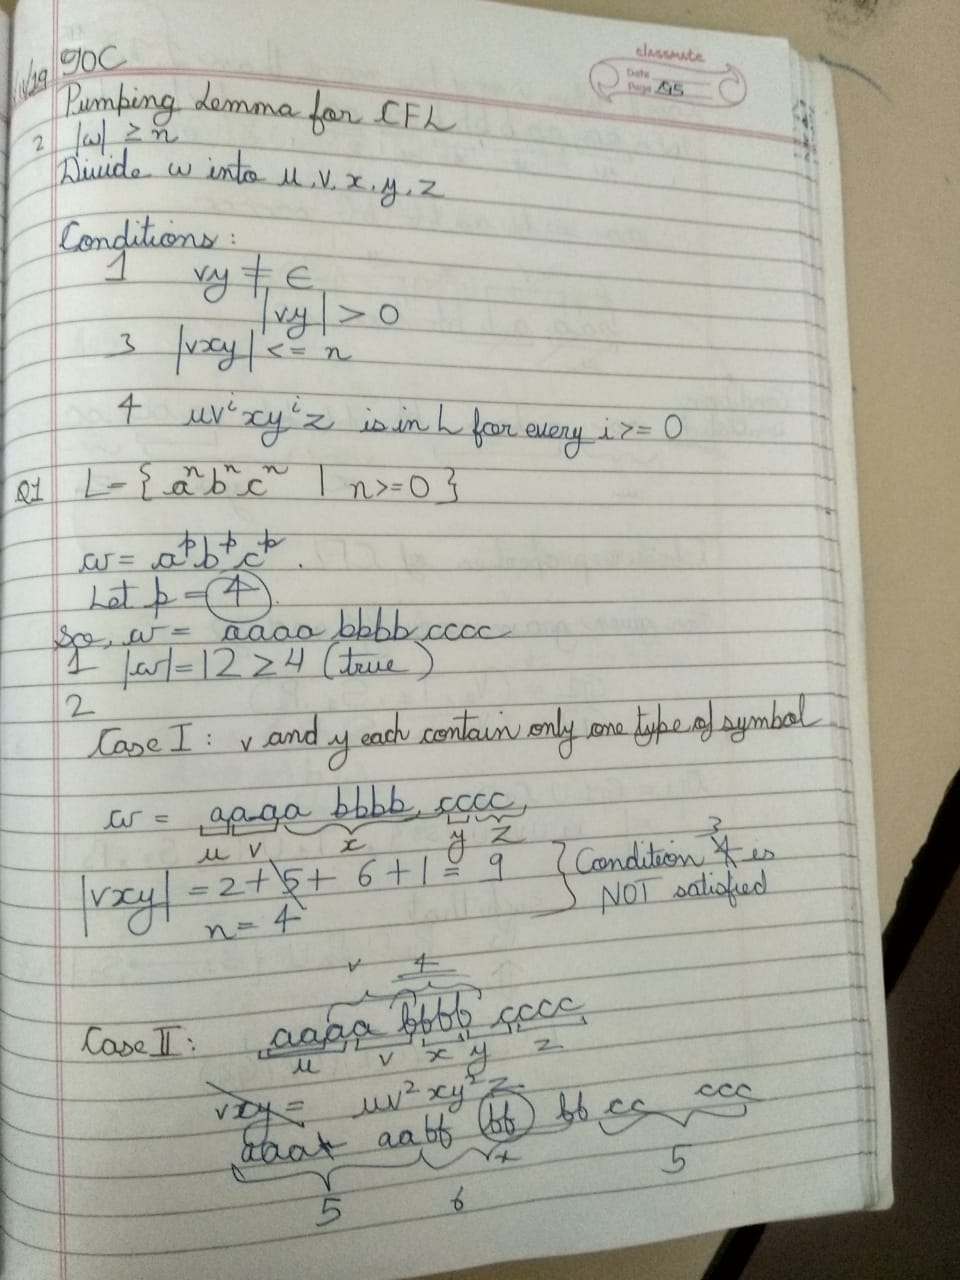 TOC
classmate
Date
Page 195
Pumping Lemma for CFL
2 |w| ≥ n
Divide w into u, v, x, y, z
Conditions :
1 vy ≠ ∈
|vy| > 0
3 |vxy| <= n
4 uvⁱxyⁱz is in L for every i >= 0
Q1 L = { aⁿbⁿcⁿ | n>=0 }
w = aᵖbᵖcᵖ .
Let p = 4.
So, w = aaaa bbbb cccc
1 |w| = 12 ≥ 4 (true)
2
Case I : v and y each contain only one type of symbol
w = aaaa bbbb cccc
u v x y z
|vxy| = 2 + 6 + 1 = 9
n = 4
} Condition 3 is
NOT satisfied
v 4
Case II : aaaa bbbb cccc
u v x y z
vxy = uv²xy²z
aaa aabb bb bb cc ccc
x
5 6 5